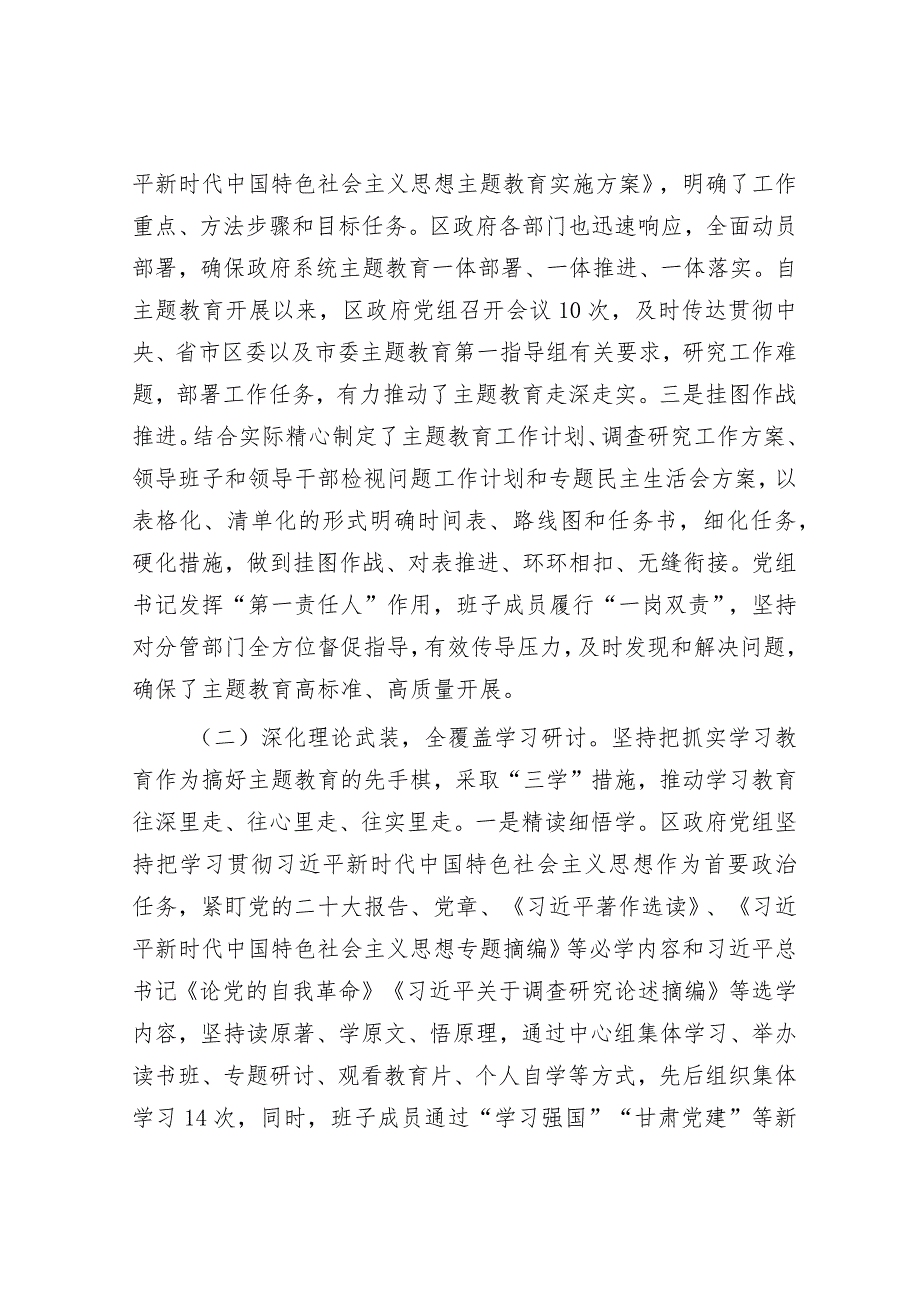 平新时代中国特色社会主义思想主题教育实施方案》，明确了工作
重点、方法步骤和目标任务。区政府各部门也迅速响应，全面动员
部署，确保政府系统主题教育一体部署、一体推进、一体落实。自
主题教育开展以来，区政府党组召开会议10次，及时传达贯彻中
央、省市区委以及市委主题教育第一指导组有关要求，研究工作难
题，部署工作任务，有力推动了主题教育走深走实。三是挂图作战
推进。结合实际精心制定了主题教育工作计划、调查研究工作方案、
领导班子和领导干部检视问题工作计划和专题民主生活会方案，以
表格化、清单化的形式明确时间表、路线图和任务书，细化任务，
硬化措施，做到挂图作战、对表推进、环环相扣、无缝衔接。党组
书记发挥“第一责任人”作用，班子成员履行“一岗双责”，坚持
对分管部门全方位督促指导，有效传导压力，及时发现和解决问题，
确保了主题教育高标准、高质量开展。
（二）深化理论武装，全覆盖学习研讨。坚持把抓实学习教
育作为搞好主题教育的先手棋，采取“三学”措施，推动学习教育
往深里走、往心里走、往实里走。一是精读细悟学。区政府党组坚
持把学习贯彻习近平新时代中国特色社会主义思想作为首要政治
任务，紧盯党的二十大报告、党章、《习近平著作选读》、《习近
平新时代中国特色社会主义思想专题摘编》等必学内容和习近平总
书记《论党的自我革命》《习近平关于调查研究论述摘编》等选学
内容，坚持读原著、学原文、悟原理，通过中心组集体学习、举办
读书班、专题研讨、观看教育片、个人自学等方式，先后组织集体
学习14次，同时，班子成员通过“学习强国”“甘肃党建”等新